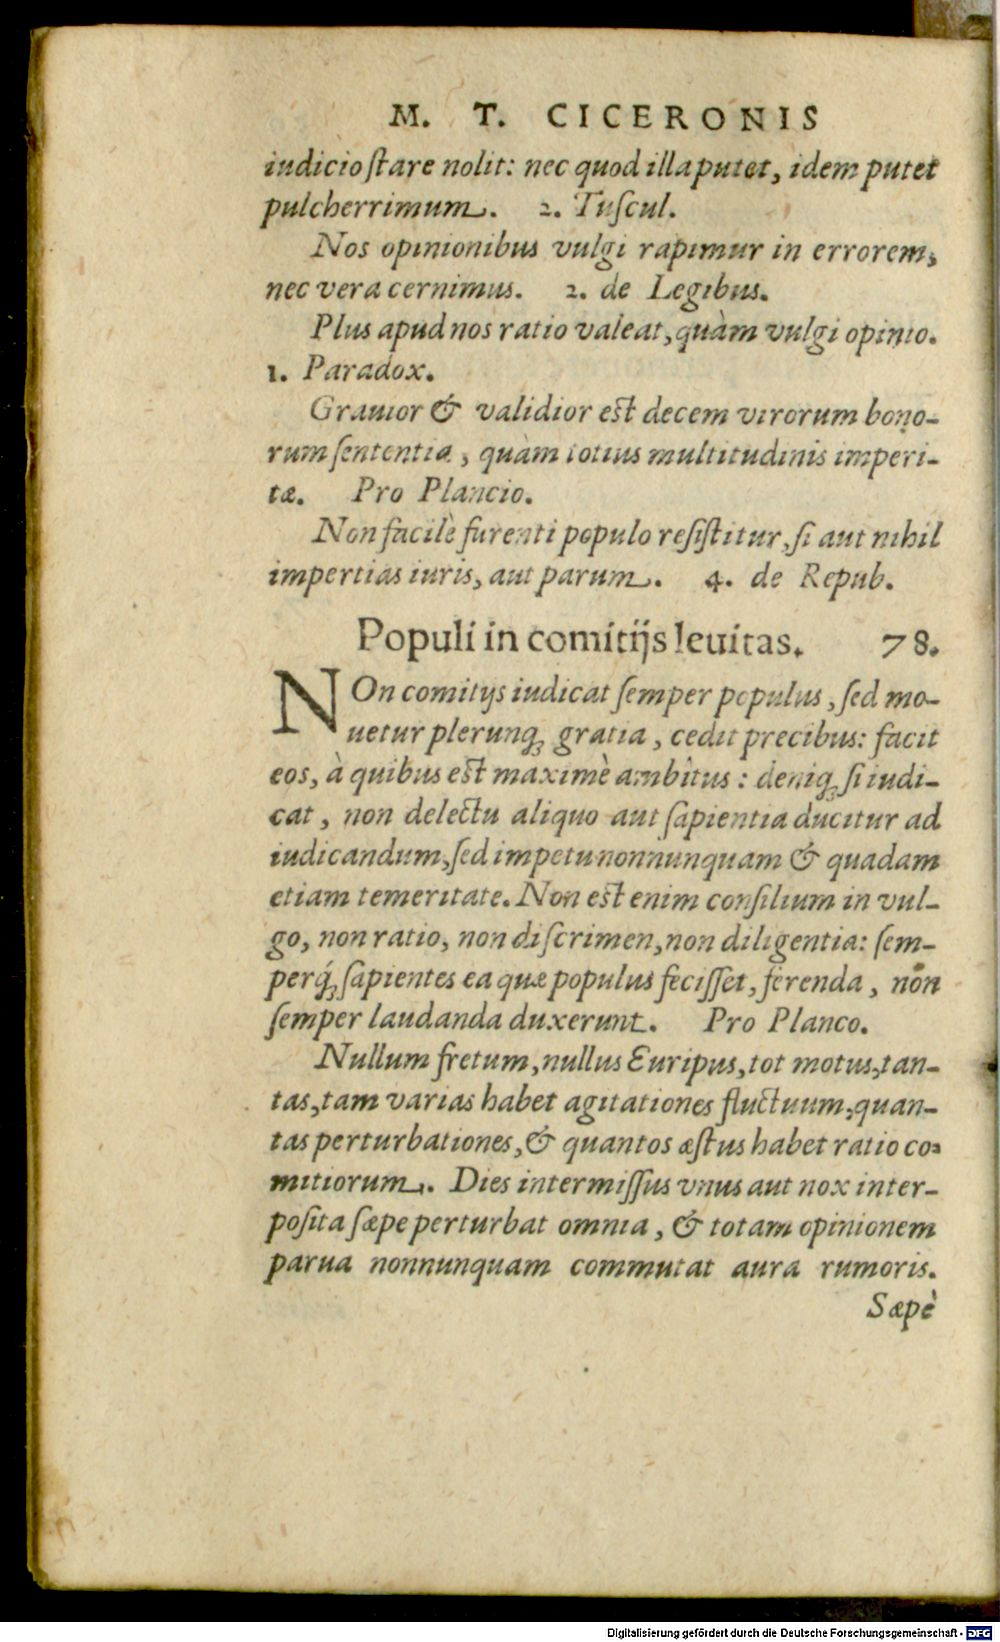 M. T. CICERONIS
iudicio ſtare nolit: nec quod illa putet, idem putet
pulcherrimum. 2. Tuſcul.
Nos opinionibus vulgi rapimur in errorem,
nec vera cernimus. 2. de Legibus.
Plus apud nos ratio valeat, quàm vulgi opinio.
1. Paradox.
Grauior & validior est decem virorum bono-
rum ſententia, quàm totius multitudinis imperi-
tæ. Pro Plancio.
Non facilè furenti populo reſiſtitur, ſi aut nihil
impertias iuris, aut parum. 4. de Repub.
Populi in comitijs leuitas. 78.
NOn comitijs iudicat ſemper populus, ſed mo-
uetur plerunq; gratia, cedit precibus: facit
eos, à quibus est maximè ambitus: deniq; ſi iudi-
cat, non delectu aliquo aut ſapientia ducitur ad
iudicandum, ſed impetu nonnunquam & quadam
etiam temeritate. Non est enim conſilium in vul-
go, non ratio, non diſcrimen, non diligentia: ſem-
perq́; ſapientes ea quæ populus feciſſet, ferenda, non
ſemper laudanda duxerunt. Pro Planco.
Nullum fretum, nullus Euripus, tot motus, tan-
tas, tam varias habet agitationes fluctuum, quan-
tas perturbationes, & quantos æſtus habet ratio co-
mitiorum. Dies intermiſſus vnus aut nox inter-
poſita ſæpe perturbat omnia, & totam opinionem
parua nonnunquam commutat aura rumoris.
Sæpè
Digitalisierung gefördert durch die Deutsche Forschungsgemeinschaft - DFG